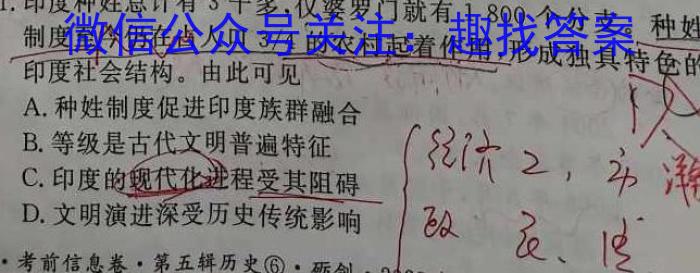 印度种姓总计有3千多,仅婆罗门就有1 800个分支。种姓
微信公众号关注：趣找答案
制度至今仍在占人口3/4的农村起着作用,形成独具特色的
印度社会结构。由此可见
A. 种姓制度促进印度族群融合
B. 等级是古代文明普遍特征
C. 印度的现代化进程受其阻碍
D. 文明演进深受历史传统影响
经济 工、市
政 民、
·考前信息卷·第五辑历史⑥·砺剑·